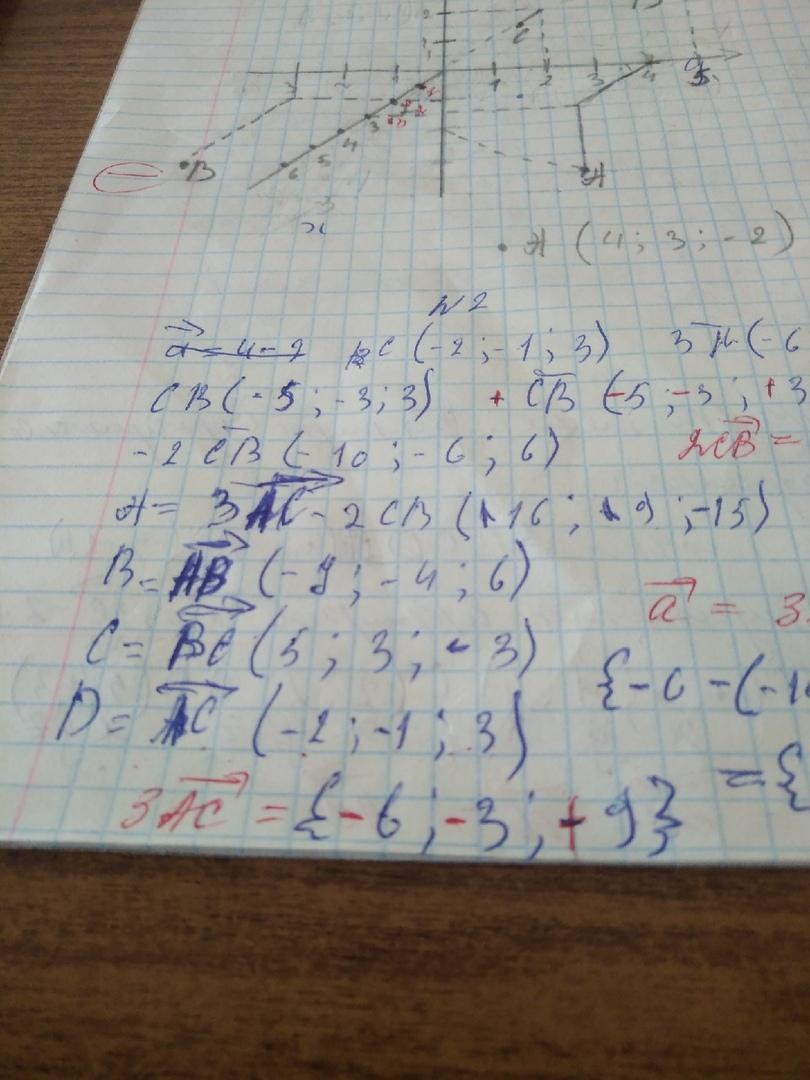 2
1
3 2 1 1 2 3 4 5
1
2
3
4
5
6
B
A
x
• A (4; 3; -2)
№2
a = 4 - 2 C (-2; -1; 3) 3 (-6
CB (-5; -3; 3) + CB (-5; -3; +3
-2 CB (-10; -6; 6) 2CB =
A = 3AC - 2CB (+16; +9; -15)
B = AB (-7; -4; 6)
a = 3
C = BC (5; 3; -3)
{-6 - (-10
D = AC (-2; -1; 3)
= {
3AC = {-6; -3; +9}